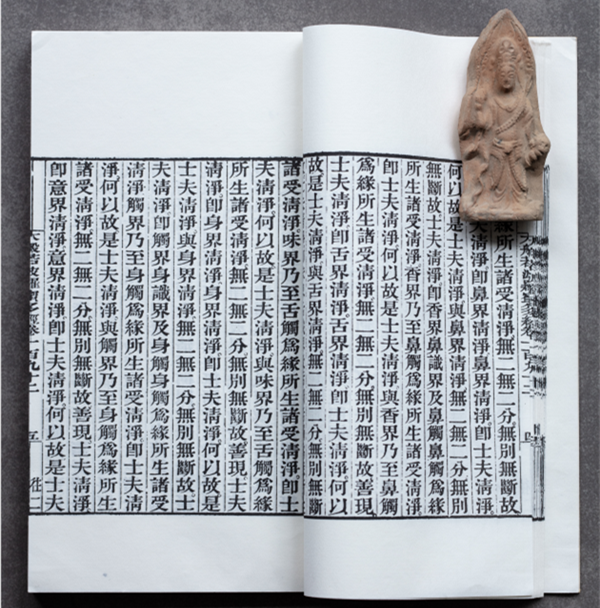 緣所生諸受清淨無二無二分無別無斷故
清淨即鼻界清淨鼻界清淨即士夫清淨
何以故是士夫清淨與鼻界清淨無二無二分無別
無斷故士夫清淨即香界鼻識界及鼻觸鼻觸爲緣
所生諸受清淨香界乃至鼻觸爲緣所生諸受清淨
即士夫清淨何以故是士夫清淨與香界乃至鼻觸
爲緣所生諸受清淨無二無二分無別無斷故善現
士夫清淨即舌界清淨舌界清淨即士夫清淨何以
故是士夫清淨與舌界清淨無二無二分無別無斷
諸受清淨味界乃至舌觸爲緣所生諸受清淨即士
夫清淨何以故是士夫清淨與味界乃至舌觸爲緣
所生諸受清淨無二無二分無別無斷故善現士夫
清淨即身界清淨身界清淨即士夫清淨何以故是
士夫清淨與身界清淨無二無二分無別無斷故士
夫清淨即觸界身識界及身觸身觸爲緣所生諸受
清淨觸界乃至身觸爲緣所生諸受清淨即士夫清
淨何以故是士夫清淨與觸界乃至身觸爲緣所生
諸受清淨無二無二分無別無斷故善現士夫清淨
即意界清淨意界清淨即士夫清淨何以故是士夫
大般若波羅蜜多經卷一百九十二 五